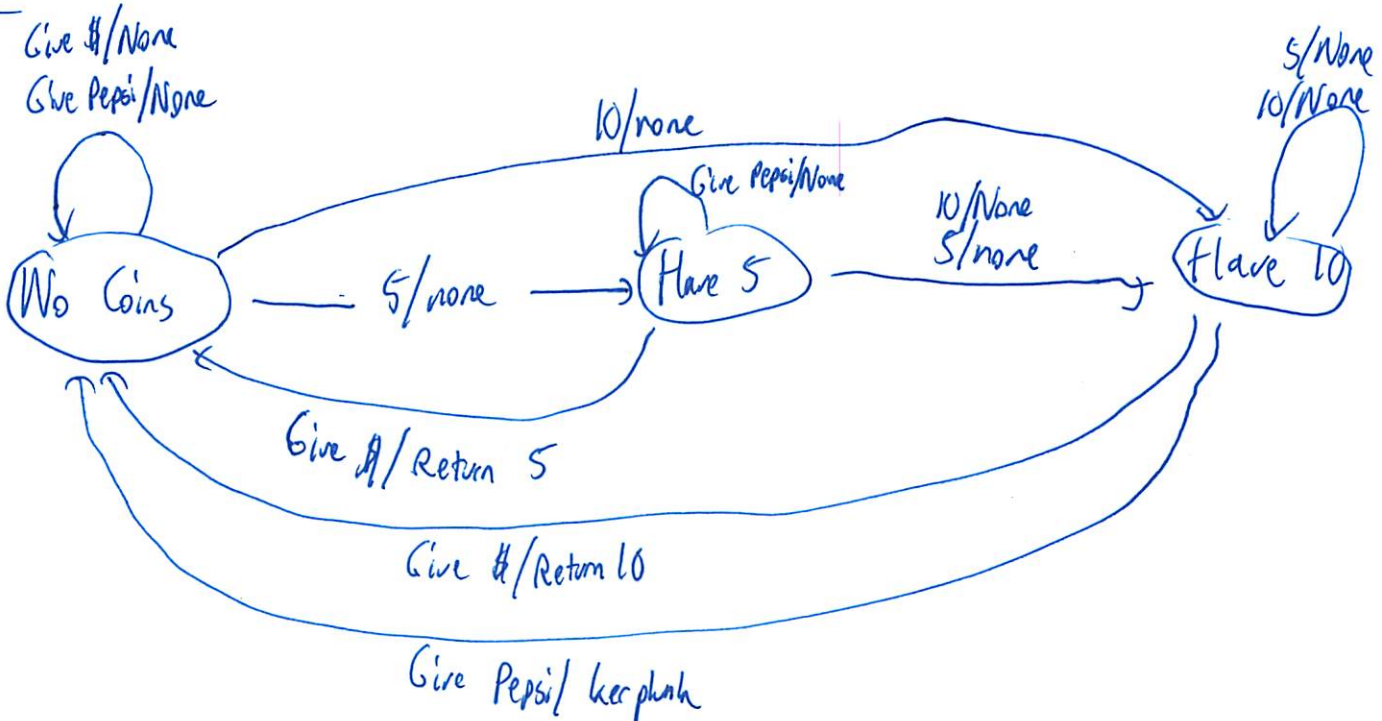 Give $/None
Give Pepsi/None
5/None
10/None
10/none
Give Pepsi/None
10/None
5/none
No Coins
5/none
Have 5
Have 10
Give $/Return 5
Give $/Return 10
Give Pepsi/ kerplunk